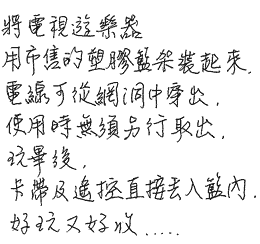 將電視遊樂器
用市售的塑膠籃架裝起來.
電線可從網洞中穿出.
使用時無須另行取出.
玩畢後.
卡帶及遙控直接丟入籃內.
好玩又好收.....